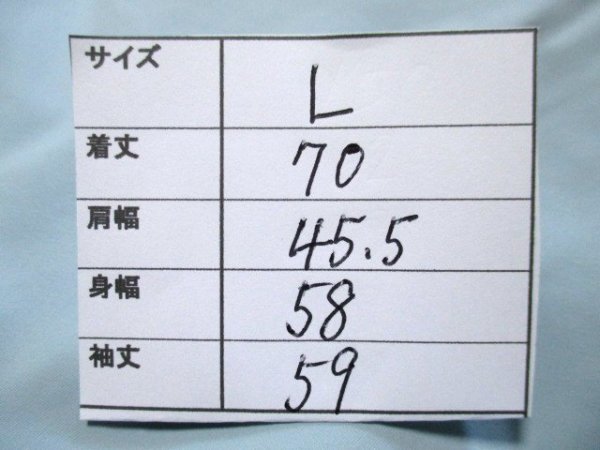 サイズ L
着丈 70
肩幅 45.5
身幅 58
袖丈 59